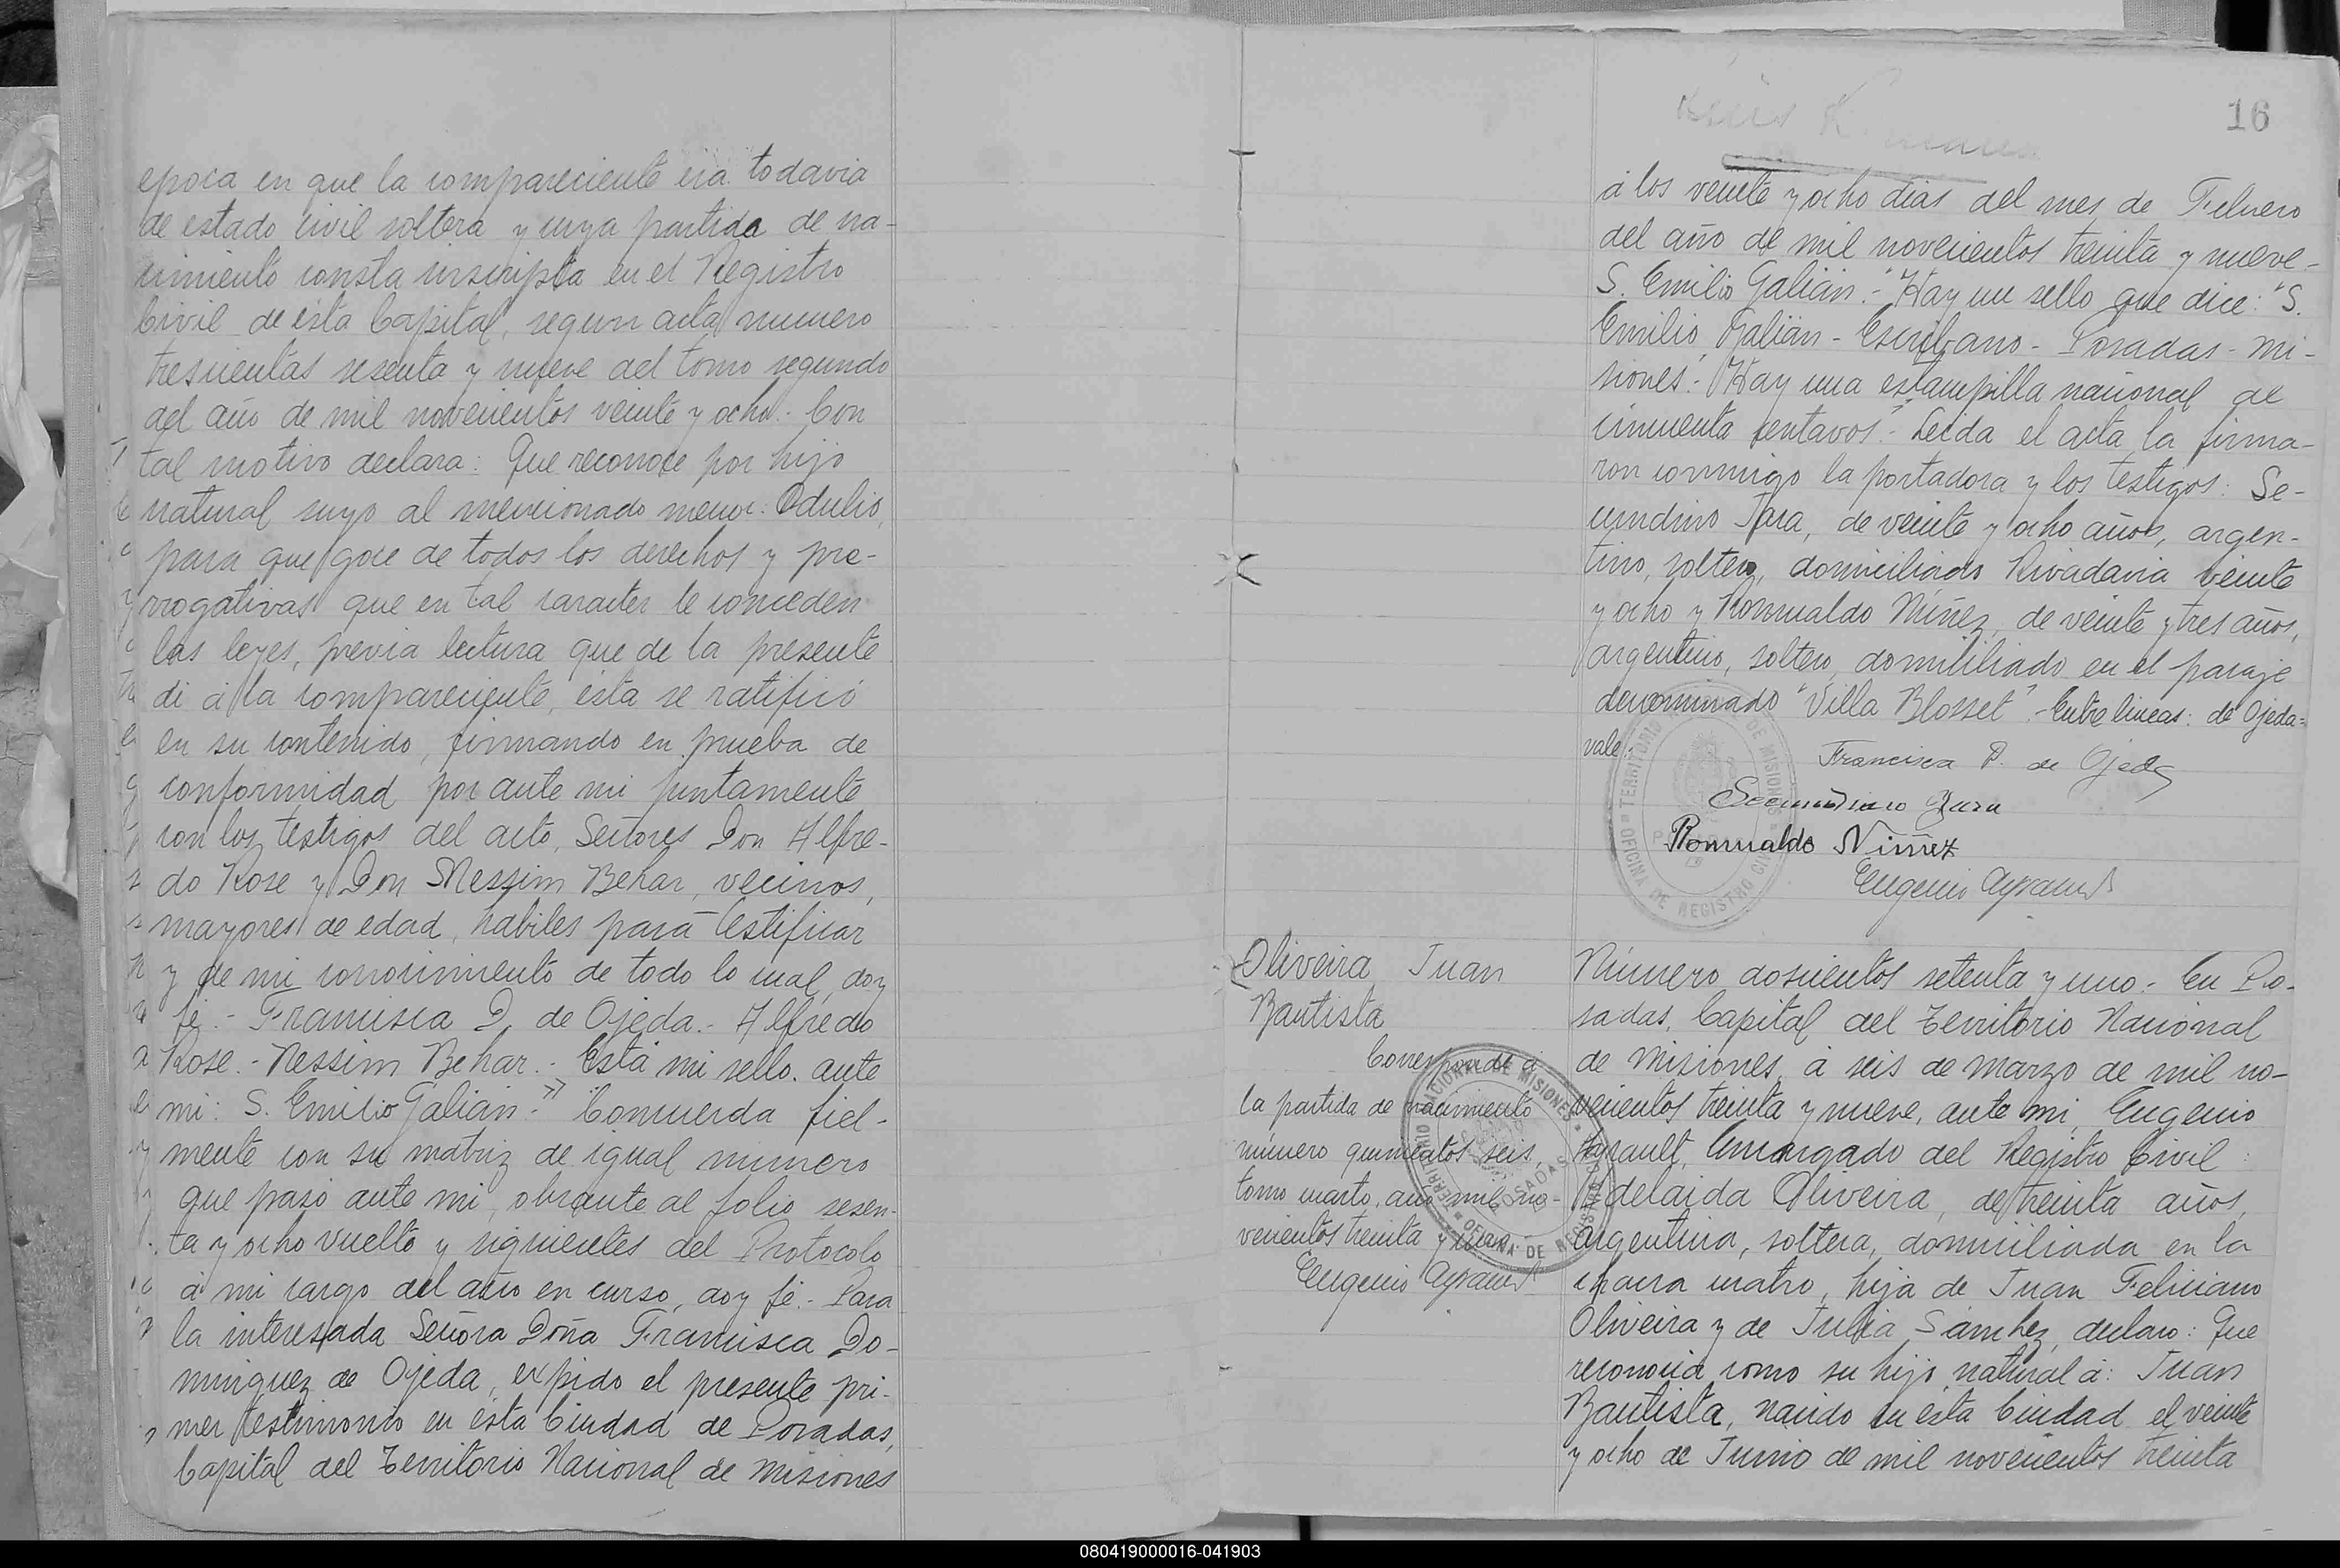 epoca en que la compareciente era todavia
de estado civil soltera y cuya partida de na-
cimiento consta inscripta en el Registro
Civil de ésta Capital, segun acta numero
trescientas sesenta y nueve del tomo segundo
del año de mil novecientos veinte y ocho.- Con
tal motivo declara: Que reconoce por hijo
natural suyo al mencionado menor: Odulio,
para que goce de todos los derechos y pre-
rrogativas que en tal caracter le conceden
las leyes, previa lectura que de la presente
di á la compareciente, ésta se ratificó
en su contenido, firmando en prueba de
conformidad por ante mi juntamente
con los testigos del acto, Señores Don Alfre-
do Rose y Don Nessim Behar, vecinos,
mayores de edad, habiles para testificar
y de mi conocimiento de todo lo cual, doy
fé.- Francisca D. de Ojeda.- Alfredo
Rose.- Nessim Behar.- Está mi sello. ante
mi: S. Emilio Galián.-" Concuerda fiel-
mente con su matriz de igual numero
que pasó ante mi, obrante al folio sesen-
ta y ocho vuelto y siguientes del Protocolo
á mi cargo del año en curso, doy fé.- Para
la interesada Señora Doña Francisca Do-
minguez de Ojeda, expido el presente pri-
mer testimonio en ésta Ciudad de Posadas,
Capital del Territorio Nacional de Misiones
16
á los veinte y ocho dias del mes de Febrero
del año de mil novecientos treinta y nueve.-
S. Emilio Galián.-" Hay un sello que dice: "S.
Emilio Galián - Escribano - Posadas - Mi-
siones.- Hay una estampilla nacional de
cincuenta centavos".- Leida el acta la firma-
ron conmigo la portadora y los testigos: Se-
cundino Jara, de veinte y ocho años, argen-
tino, soltero, domiciliado Rivadavia veinte
y ocho y Romualdo Núñez, de veinte y tres años,
argentino, soltero, domiciliado en el paraje
denominado "Villa Blosset".- Entre lineas: de Ojeda=
vale.-
Francisca D. de Ojeda
Secundino Jara
Romualdo Núñez
Eugenio Ayrault
TERRITORIO NACIONAL DE MISIONES
POSADAS
OFICINA DE REGISTRO CIVIL
Oliveira Juan
Bautista
Corresponde á
la partida de nacimiento
número quinientos seis,
tomo cuarto, año mil no-
vecientos treinta y
Eugenio Ayrault
TERRITORIO NACIONAL DE MISIONES
POSADAS
OFICINA DE REGISTRO CIVIL
Número doscientos setenta y uno.- En Po-
sadas, Capital del Territorio Nacional
de Misiones, á seis de marzo de mil no-
vecientos treinta y nueve, ante mi, Eugenio
Ayrault, Encargado del Registro Civil:
Adelaida Oliveira, de treinta años,
argentina, soltera, domiciliada en la
chacra cuatro, hija de Juan Feliciano
Oliveira y de Julia Sánchez, declaro: Que
reconocia como su hijo natural á: Juan
Bautista, nacido en ésta Ciudad el veinte
y ocho de Junio de mil novecientos treinta
080419000016-041903